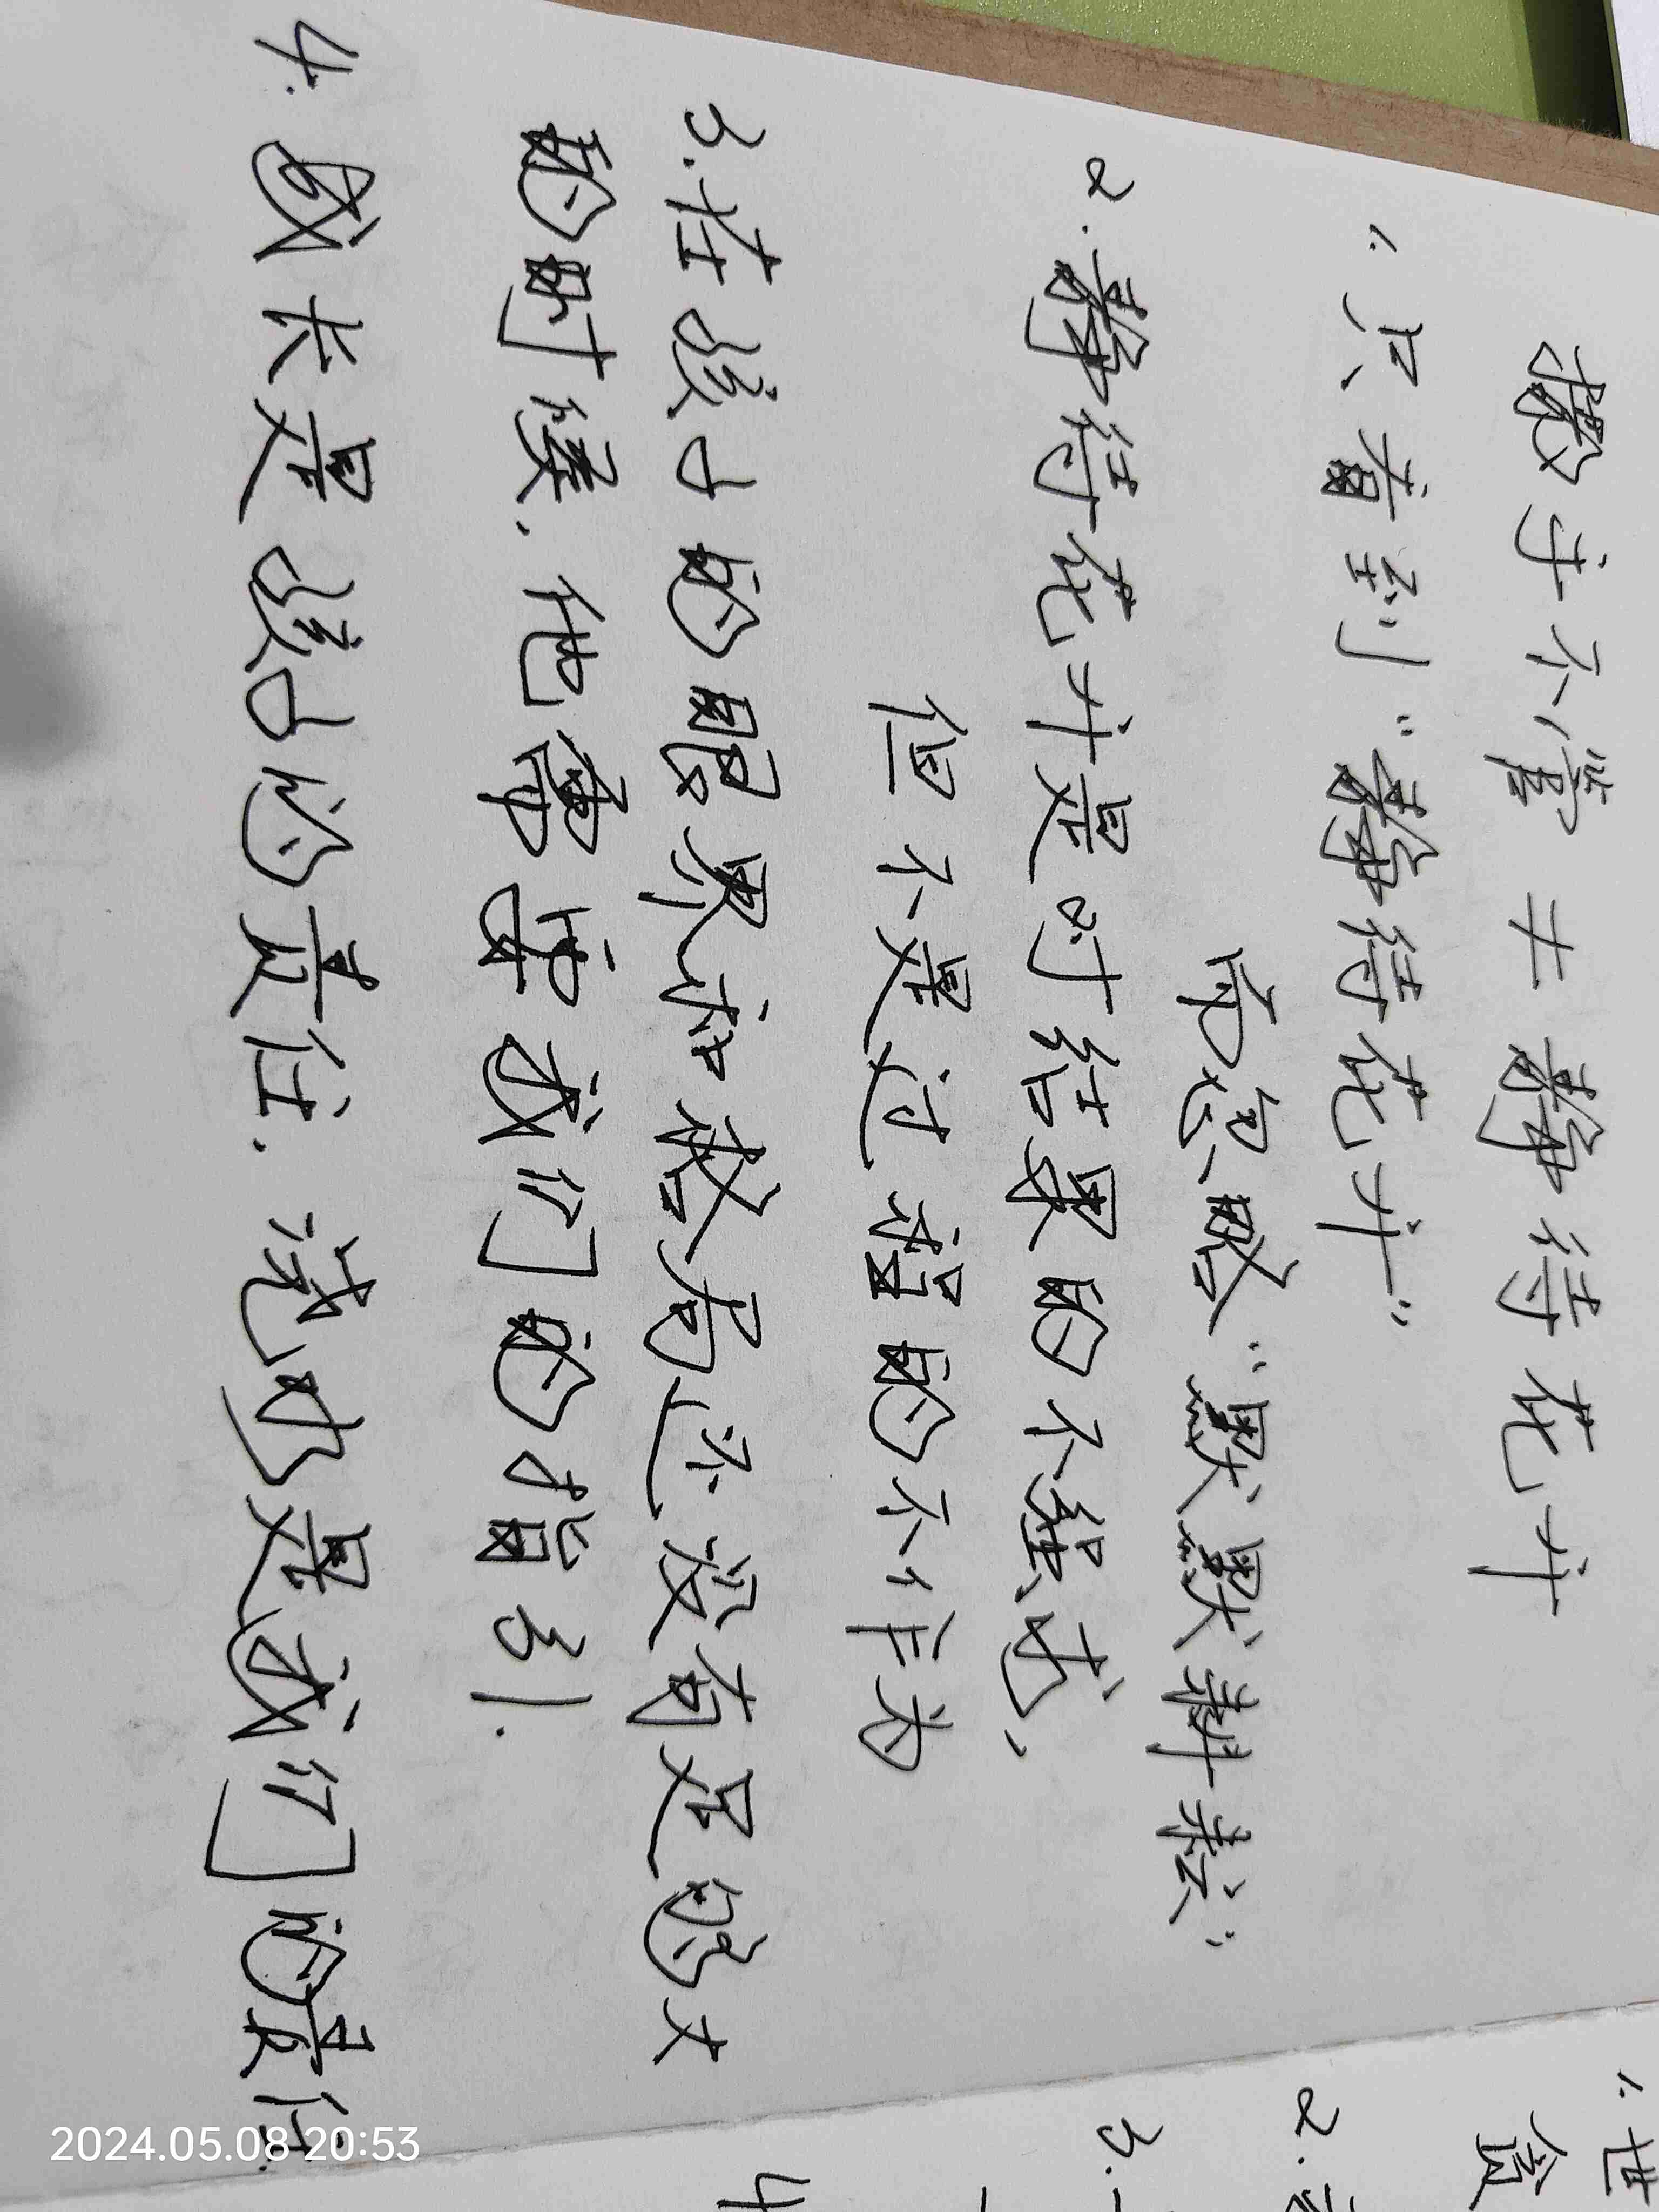 撒手不管 ≠ 静待花开
1. 只看到“静待花开”
而忽略“默默耕耘”
2. 静待花开是对结果的不强求，
但不是过程的不作为
3. 在孩子的眼界和格局还没有足够大
的时候，他需要我们的指引.
4. 成长是孩子的责任，诚也是我们的责任.
1. 世
贪
2.
3.
4
2024.05.08 20:53